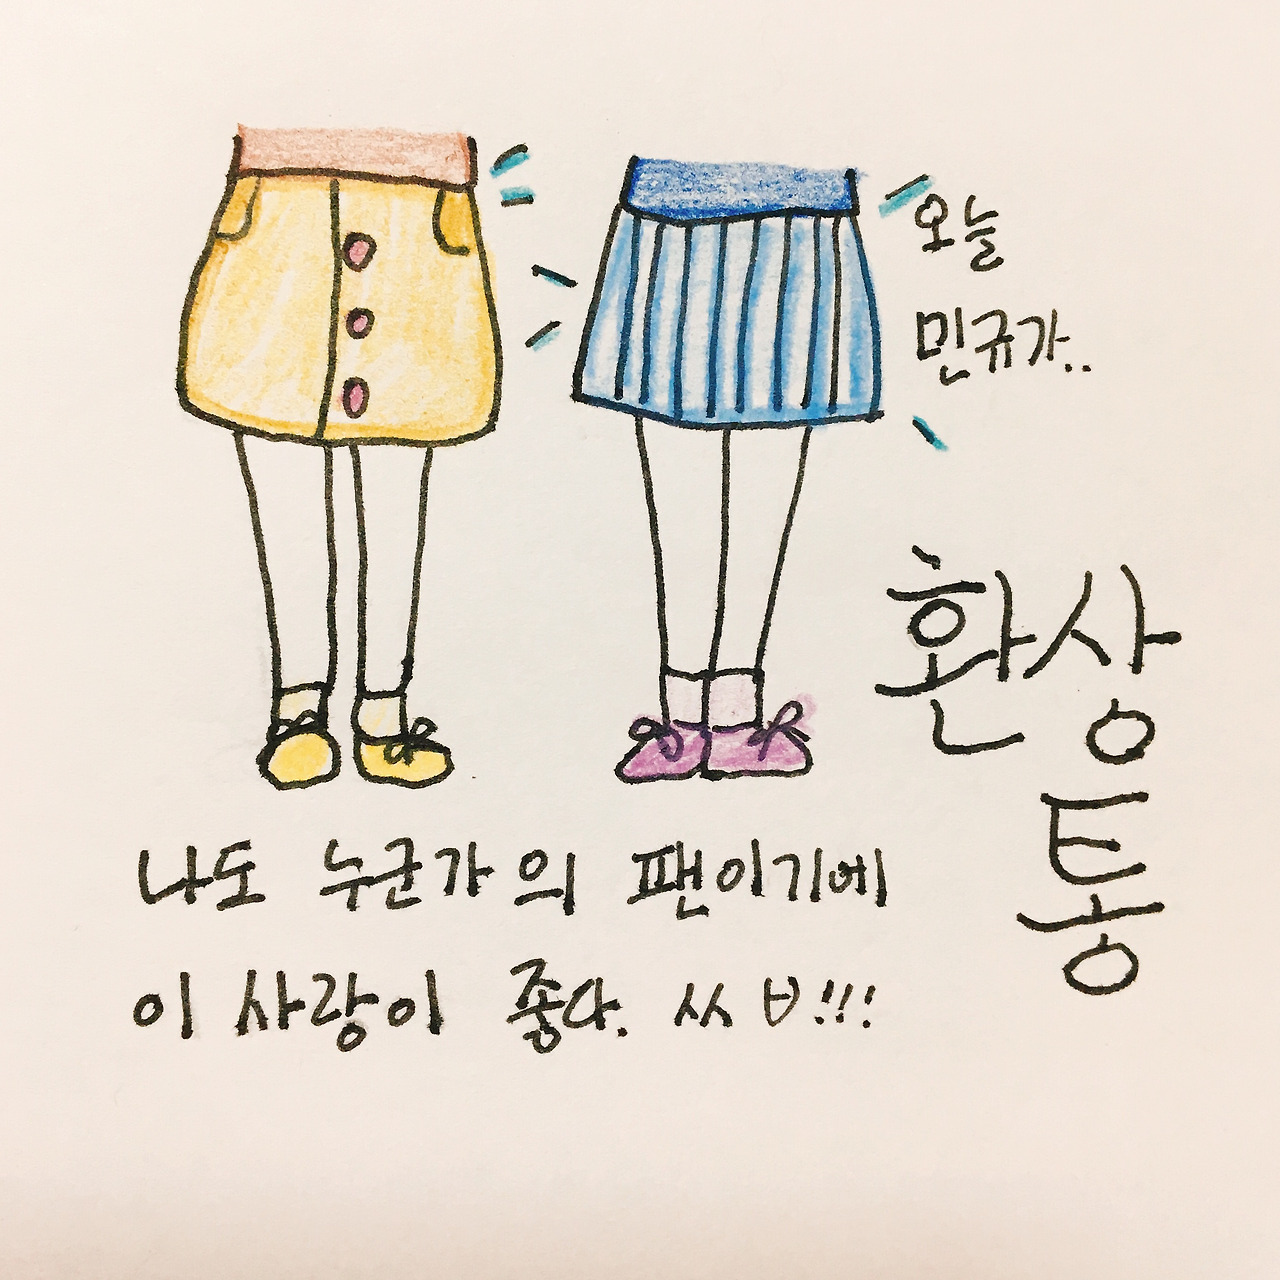 오늘
민규가..
환상
통
나도 누군가의 팬이기에
이 사랑이 좋다. ㅆㅂ!!!